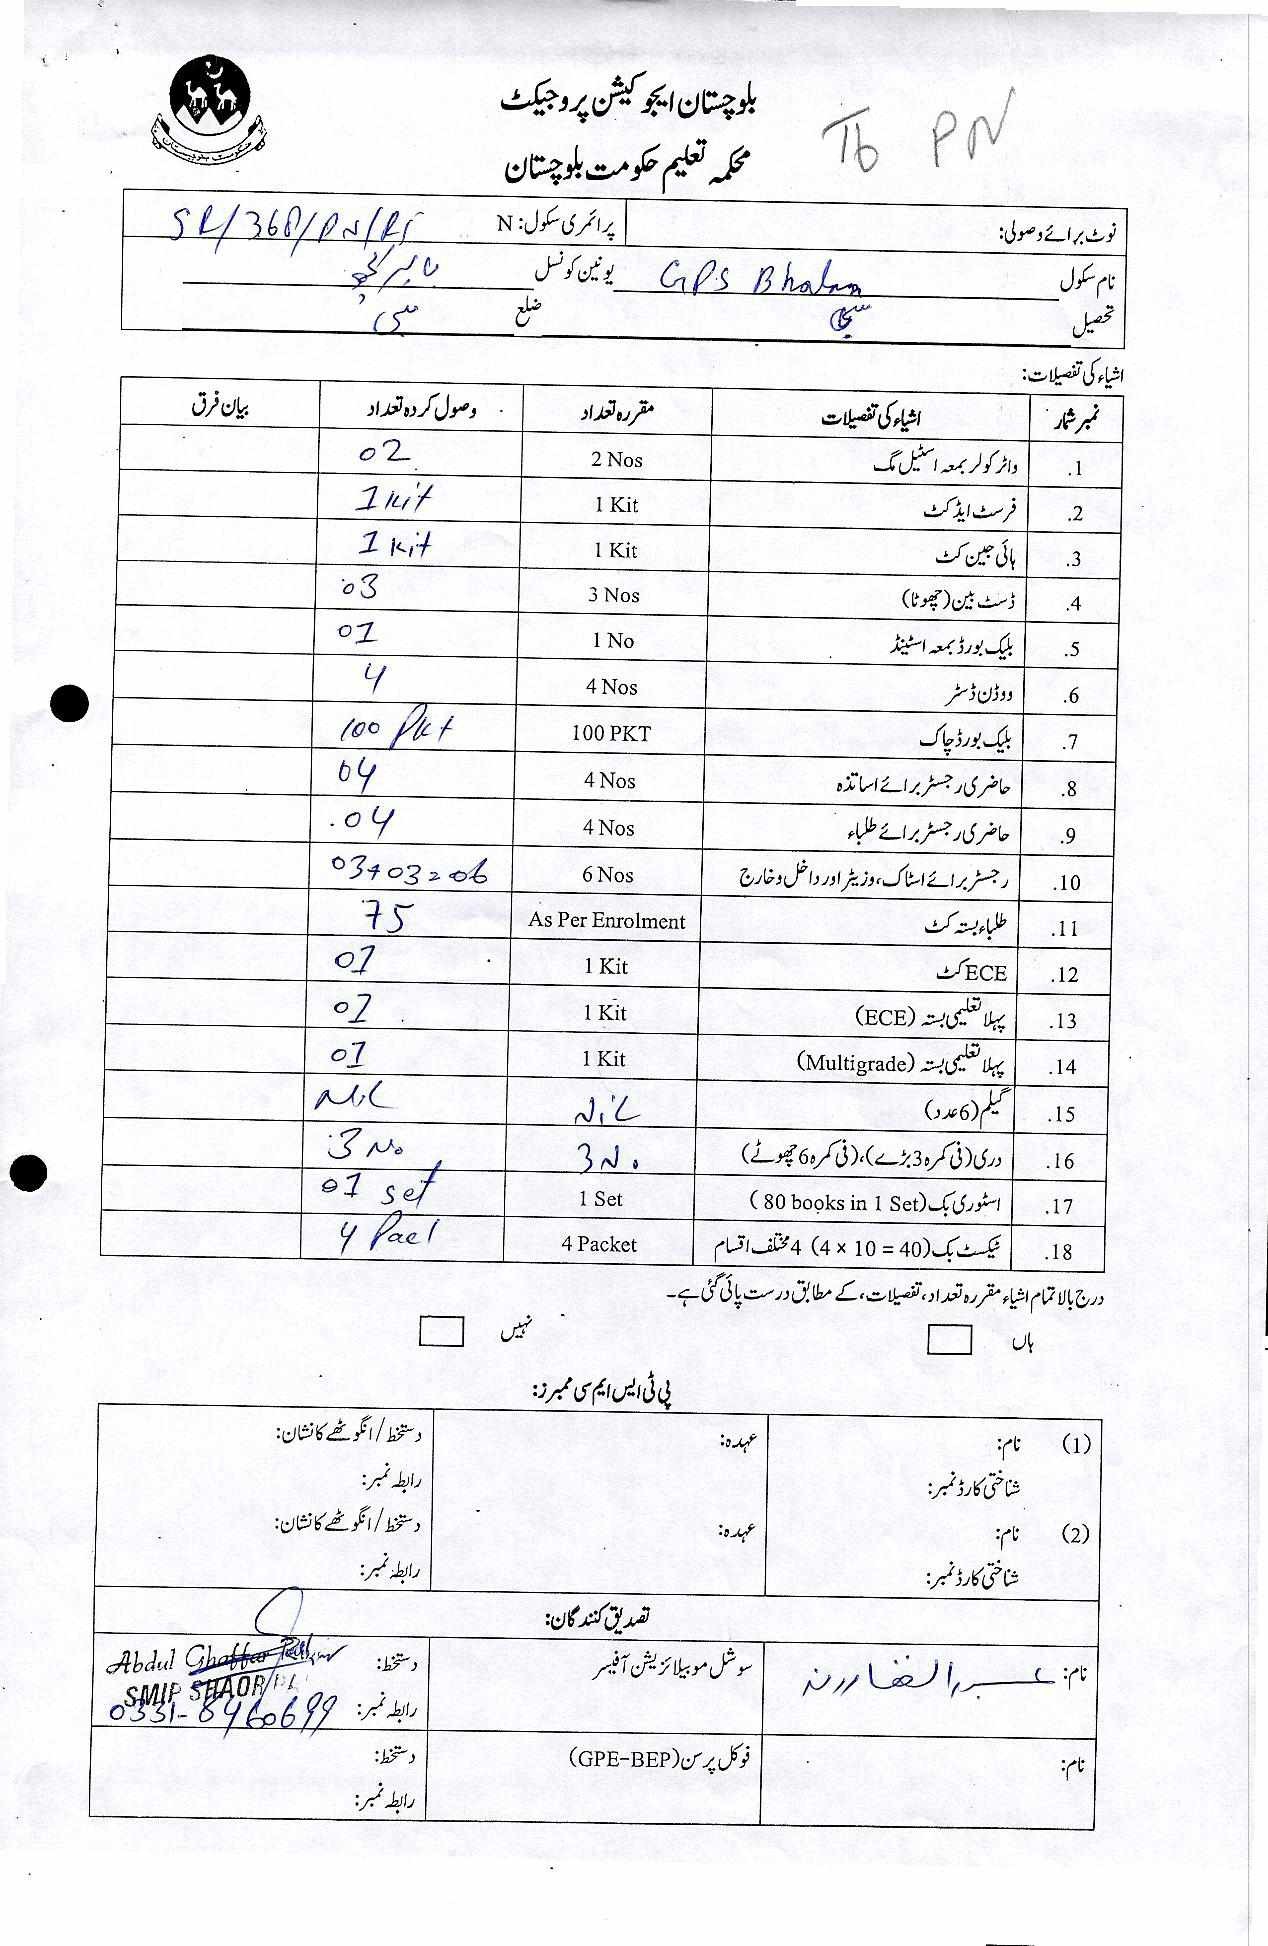 بلوچستان ایجوکیشن پروجیکٹ
محکمہ تعلیم حکومت بلوچستان
PN
نوٹ برائے وصولی: پرائمری سکول: N SR/368/PN/RI
نام سکول GPS Bhalam یونین کونسل
تحصیل ضلع سبی
اشیاء کی تفصیلات:
نمبر شمار اشیاء کی تفصیلات مقررہ تعداد وصول کردہ تعداد بیان فرق
1. واٹر کولر بمعہ اسٹیل مگ 2 Nos 02
2. فرسٹ ایڈ کٹ 1 Kit 1 Kit
3. ہائی جین کٹ 1 Kit 1 kit
4. ڈسٹ بین (چھوٹا) 3 Nos 03
5. بلیک بورڈ بمعہ اسٹینڈ 1 No 01
6. ووڈن ڈسٹر 4 Nos 4
7. بلیک بورڈ چاک 100 PKT 100 Pkt
8. حاضری رجسٹر برائے اساتذہ 4 Nos 04
9. حاضری رجسٹر برائے طلباء 4 Nos 04
10. رجسٹر برائے اسٹاک، وزیٹر اور داخل و خارج 6 Nos 03+03=06
11. طلباء بستہ کٹ As Per Enrolment 75
12. ECE کٹ 1 Kit 01
13. پہلا تعلیمی بستہ (ECE) 1 Kit 01
14. پہلا تعلیمی بستہ (Multigrade) 1 Kit 01
15. گیلم (6 عدد) NiL NiL
16. دری (فی کمرہ 3 بڑے)، (فی کمرہ 6 چھوٹے) 3 No 3 No
17. اسٹوری بک (80 books in 1 Set) 1 Set 01 set
18. ٹیکسٹ بک (4 × 10 = 40) 4 مختلف اقسام 4 Packet 4 Pact
درج بالا تمام اشیاء مقررہ تعداد، تفصیلات، کے مطابق درست پائی گئی ہے۔
ہاں نہیں
پی ٹی ایس ایم سی ممبرز:
(1) نام: عہدہ: دستخط/انگوٹھے کا نشان:
شناختی کارڈ نمبر: رابطہ نمبر:
(2) نام: عہدہ: دستخط/انگوٹھے کا نشان:
شناختی کارڈ نمبر: رابطہ نمبر:
تصدیق کنندگان:
نام: سوشل موبیلائزیشن آفیسر دستخط: Abdul Ghaffar
SMIP
رابطہ نمبر: 0331-8960699
نام: فوکل پرسن (GPE-BEP) دستخط:
رابطہ نمبر: